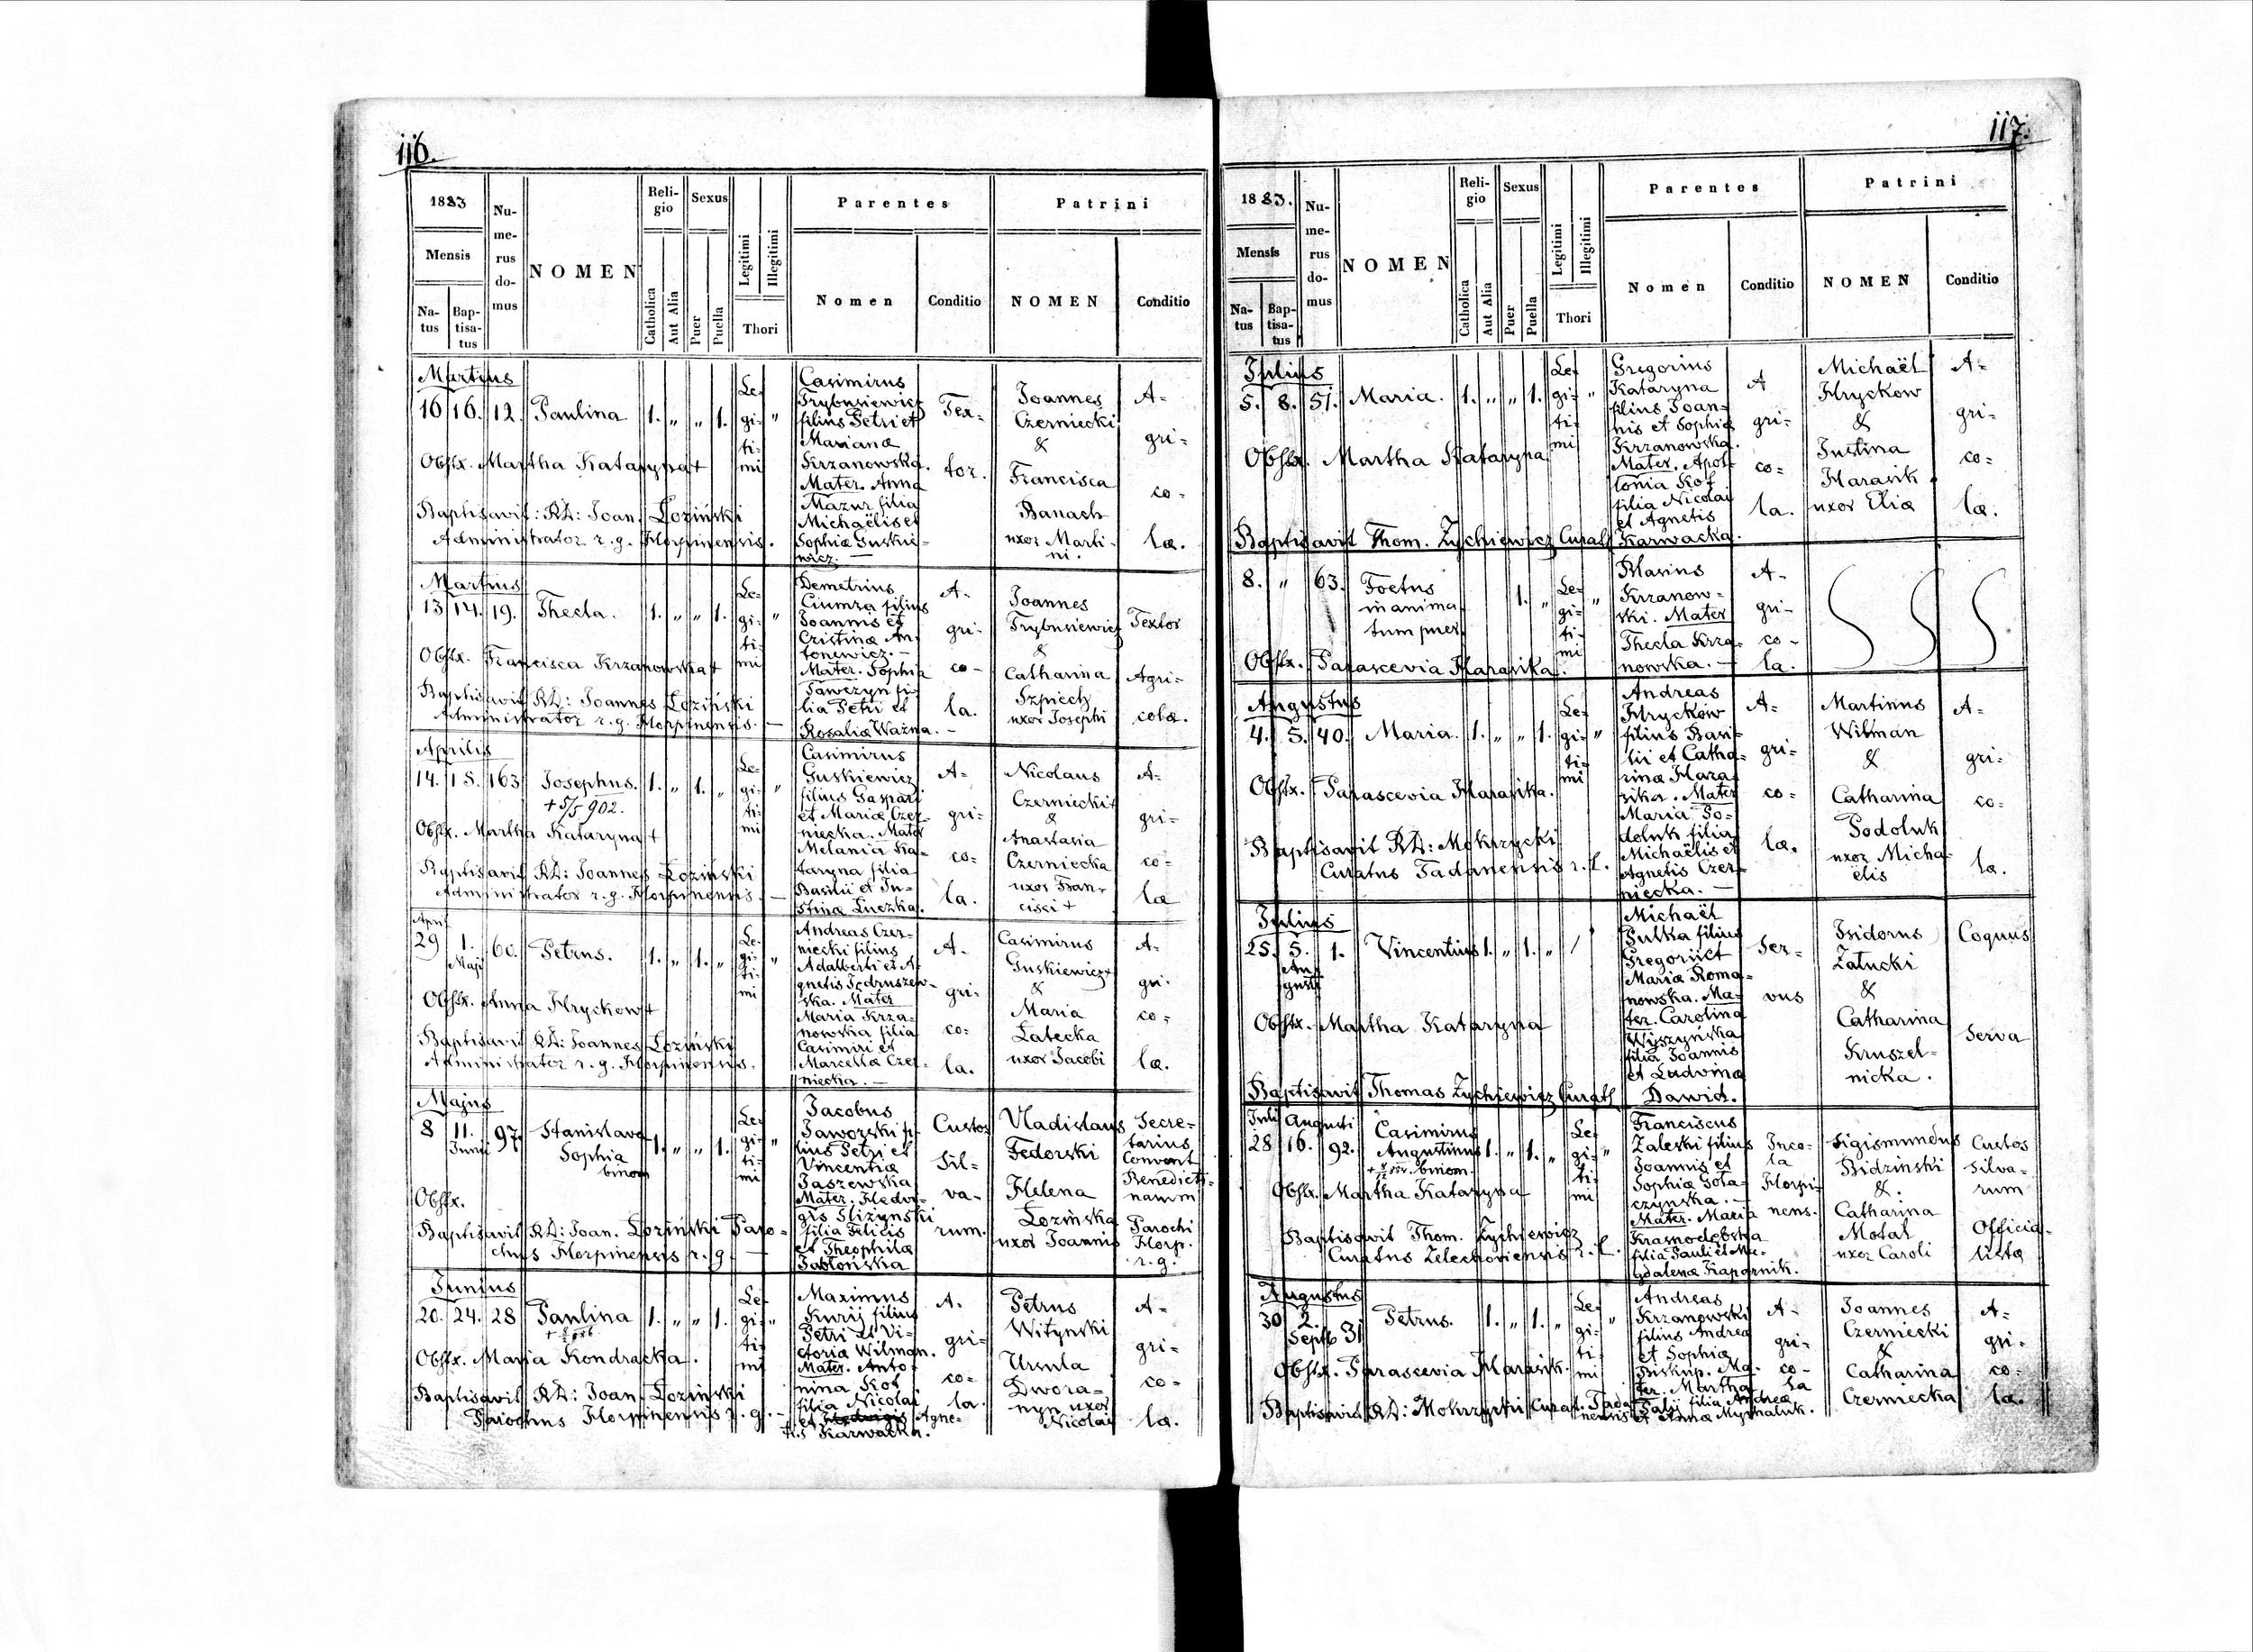 116.
1883
Mensis
Na-
tus
Bap-
tisa-
tus
Nu-
me-
rus
do-
mus
NOMEN
Reli-
gio
Catholica
Aut Alia
Sexus
Puer
Puella
Legitimi
Illegitimi
Thori
Parentes
Nomen
Conditio
Patrini
NOMEN
Conditio
Martius
16 16. 12. Paulina 1. " " 1.
Le-
gi- "
ti-
mi
Obstx. Martha Kataryna +
Baptisavit: RD: Joan. Łoziński
Administrator r. g. Horpinensis.
Casimirus
Trybusiewicz
filius Petri et
Marianæ
Krzanowska.
Mater. Anna
Mazur filia
Michaëlis et
Sophiæ Guskie-
wicz. —
Tex-
tor.
Joannes
Czerniecki
&
Francisca
Banach
uxor Marti-
ni.
A-
gri-
co-
læ.
Martius
13 14. 19. Thecla. 1. " " 1.
Le-
gi- "
ti-
mi
Obstx. Francisca Krzanowska +
Baptisavit RD: Joannes Łoziński
Administrator r. g. Horpinensis. —
Demetrius
Ciumża filius
Joannis et
Cristinæ An-
tonewicz. —
Mater. Sophia
Tawczyn fi-
lia Petri et
Rosaliæ Ważna. —
A-
gri-
co-
la.
Joannes
Trybusiewicz
&
Catharina
Szpiech
uxor Josephi
Textor
Agri-
colæ.
Aprilis
14. 15. 163 Josephus. 1. " 1. "
+ 5/5 902.
Le-
gi- "
ti-
mi
Obstx. Martha Kataryna +
Baptisavit RD: Joannes Łoziński
Administrator r. g. Horpinensis. —
Casimirus
Guskiewicz
filius Gaspari
et Mariæ Czer-
niecka. Mater
Melania Ka-
taryna filia
Basilii et Ju-
stinæ Łuczka.
A-
gri-
co-
la.
Nicolaus
Czerniecki +
&
Anastasia
Czerniecka
uxor Fran-
cisci +
A-
gri-
co-
læ
April
29 1. 60. Petrus. 1. " 1. "
Maji
Le-
gi- "
ti-
mi
Obstx. Anna Hryckow +
Baptisavit RD: Joannes Łoziński
Administrator r. g. Horpinensis.
Andreas Czer-
niecki filius
Adalberti et A-
gnetis Jędruszew-
ska. Mater
Maria Krza-
nowska filia
Casimiri et
Marcellæ Czer-
niecka. —
A-
gri-
co-
la.
Casimirus
Guskiewicz +
&
Maria
Łatecka
uxor Jacobi
A-
gri-
co-
læ.
Majus
8 11. 97. Stanislava 1. " " 1.
Junii Sophia
binom
Le-
gi- "
ti-
mi
Obstx.
Baptisavit RD: Joan. Łoziński Paro-
chus Horpinensis r. g. —
Jacobus
Jaworski fi-
lius Petri et
Vincentiæ
Jaszewska
Mater. Hedvi-
gis Sliżynski
filia Felicis
et Theophilæ
Jabłońska
Custos
Sil-
va-
rum.
Vladislaus
Fedorski
Helena
Łozińska
uxor Joannis
Secre-
tarius
Convent
Benedicti-
narum
Parochi
Horp.
r. g.
Junius
20. 24. 28 Paulina 1. " " 1.
Le-
gi- "
ti-
mi
Obstx. Maria Kondracka.
Baptisavit RD: Joan. Łoziński
Parochus Horpinensis r. g. —
Maximus
Kurij filius
Petri et Vi-
ctoriæ Wilman.
Mater. Anto-
nina Kot
filia Nicolai
et Hedvigis Agne-
tis Karwacka.
A-
gri-
co-
la.
Petrus
Witynski
Ursula
Dwora-
nyn uxor
Nicolai
A-
gri-
co-
læ.
117.
1883.
Mensis
Na-
tus
Bap-
tisa-
tus
Nu-
me-
rus
do-
mus
NOMEN
Reli-
gio
Catholica
Aut Alia
Sexus
Puer
Puella
Legitimi
Illegitimi
Thori
Parentes
Nomen
Conditio
Patrini
NOMEN
Conditio
Julius
5. 8. 51. Maria. 1. " " 1.
Le-
gi- "
ti-
mi
Obstx. Martha Kataryna
Baptisavit Thom. Zychiewicz Curat
Gregorius
Kataryna
filius Joan-
nis et Sophiæ
Krzanowska.
Mater. Apol-
lonia Kot
filia Nicolai
et Agnetis
Karwacka.
A
gri-
co-
la.
Michaël
Hryckow
&
Justina
Harasik
uxor Eliæ
A-
gri-
co-
læ.
8. " 63. Foetus 1. "
inanima-
tum puer
Le-
gi- "
ti-
mi
Obstx. Parascevia Harasika.
Blasius
Krzanow-
ski. Mater
Thecla Krza-
nowska. —
A-
gri-
co-
la.
Augustus
4. 5. 40. Maria. 1. " " 1.
Le-
gi- "
ti-
mi
Obstx. Parascevia Harasika.
Baptisavit RD: Mokrzycki
Curatus Tadanensis r. l.
Andreas
Hryckow
filius Basi-
lii et Catha-
rinæ Hara-
sika. Mater
Maria Po-
doluk filia
Michaëlis et
Agnetis Czer-
niecka. —
A-
gri-
co-
læ.
Martinus
Wilman
&
Catharina
Podoluk
uxor Micha-
ëlis
A-
gri-
co-
læ.
Julius
25. 5. 1. Vincentius 1. " 1. " /
Au-
gusti
Obstx. Martha Kataryna
Baptisavit Thomas Zychiewicz Curat
Michaël
Pulka filius
Gregorii et
Mariæ Roma-
nowska. Ma-
ter. Carolina
Wyszyńska
filia Joannis
et Ludvinæ
Dawid.
Ser-
vus
Isidorus
Załucki
&
Catharina
Kruszel-
nicka.
Coquus
Serva
Julii Augusti
28 16. 92. Casimirus 1. " 1. "
Augustinus
binom.
Le-
gi- "
ti-
mi
Obstx. Martha Kataryna
Baptisavit Thom. Zychiewicz
Curatus Zelechoviensis r. l.
Franciscus
Zaleski filius
Joannis et
Sophiæ Gota-
czynska. —
Mater. Maria
Krasnodębska
filia Pauli et Ma-
gdalenæ Kapornik.
Inco-
la
Horpi-
nens.
Sigismundus
Bidzinski
&.
Catharina
Motał
uxor Caroli
Custos
silva-
rum
Officia-
listæ
Augustus
30 2. 31 Petrus. 1. " 1. "
Septb
Le- "
gi-
ti-
mi
Obstx. Parascevia Harasik.
Baptisavit RD: Mokrzycki Curat. Tada-
nensis
Andreas
Krzanowski
filius Andreæ
et Sophiæ
Biskup. Ma-
ter. Martha
filia Andreæ
et Annæ Myhaluk.
A-
gri-
co-
la
Joannes
Czerniecki
&
Catharina
Czerniecka
A-
gri-
co-
læ.